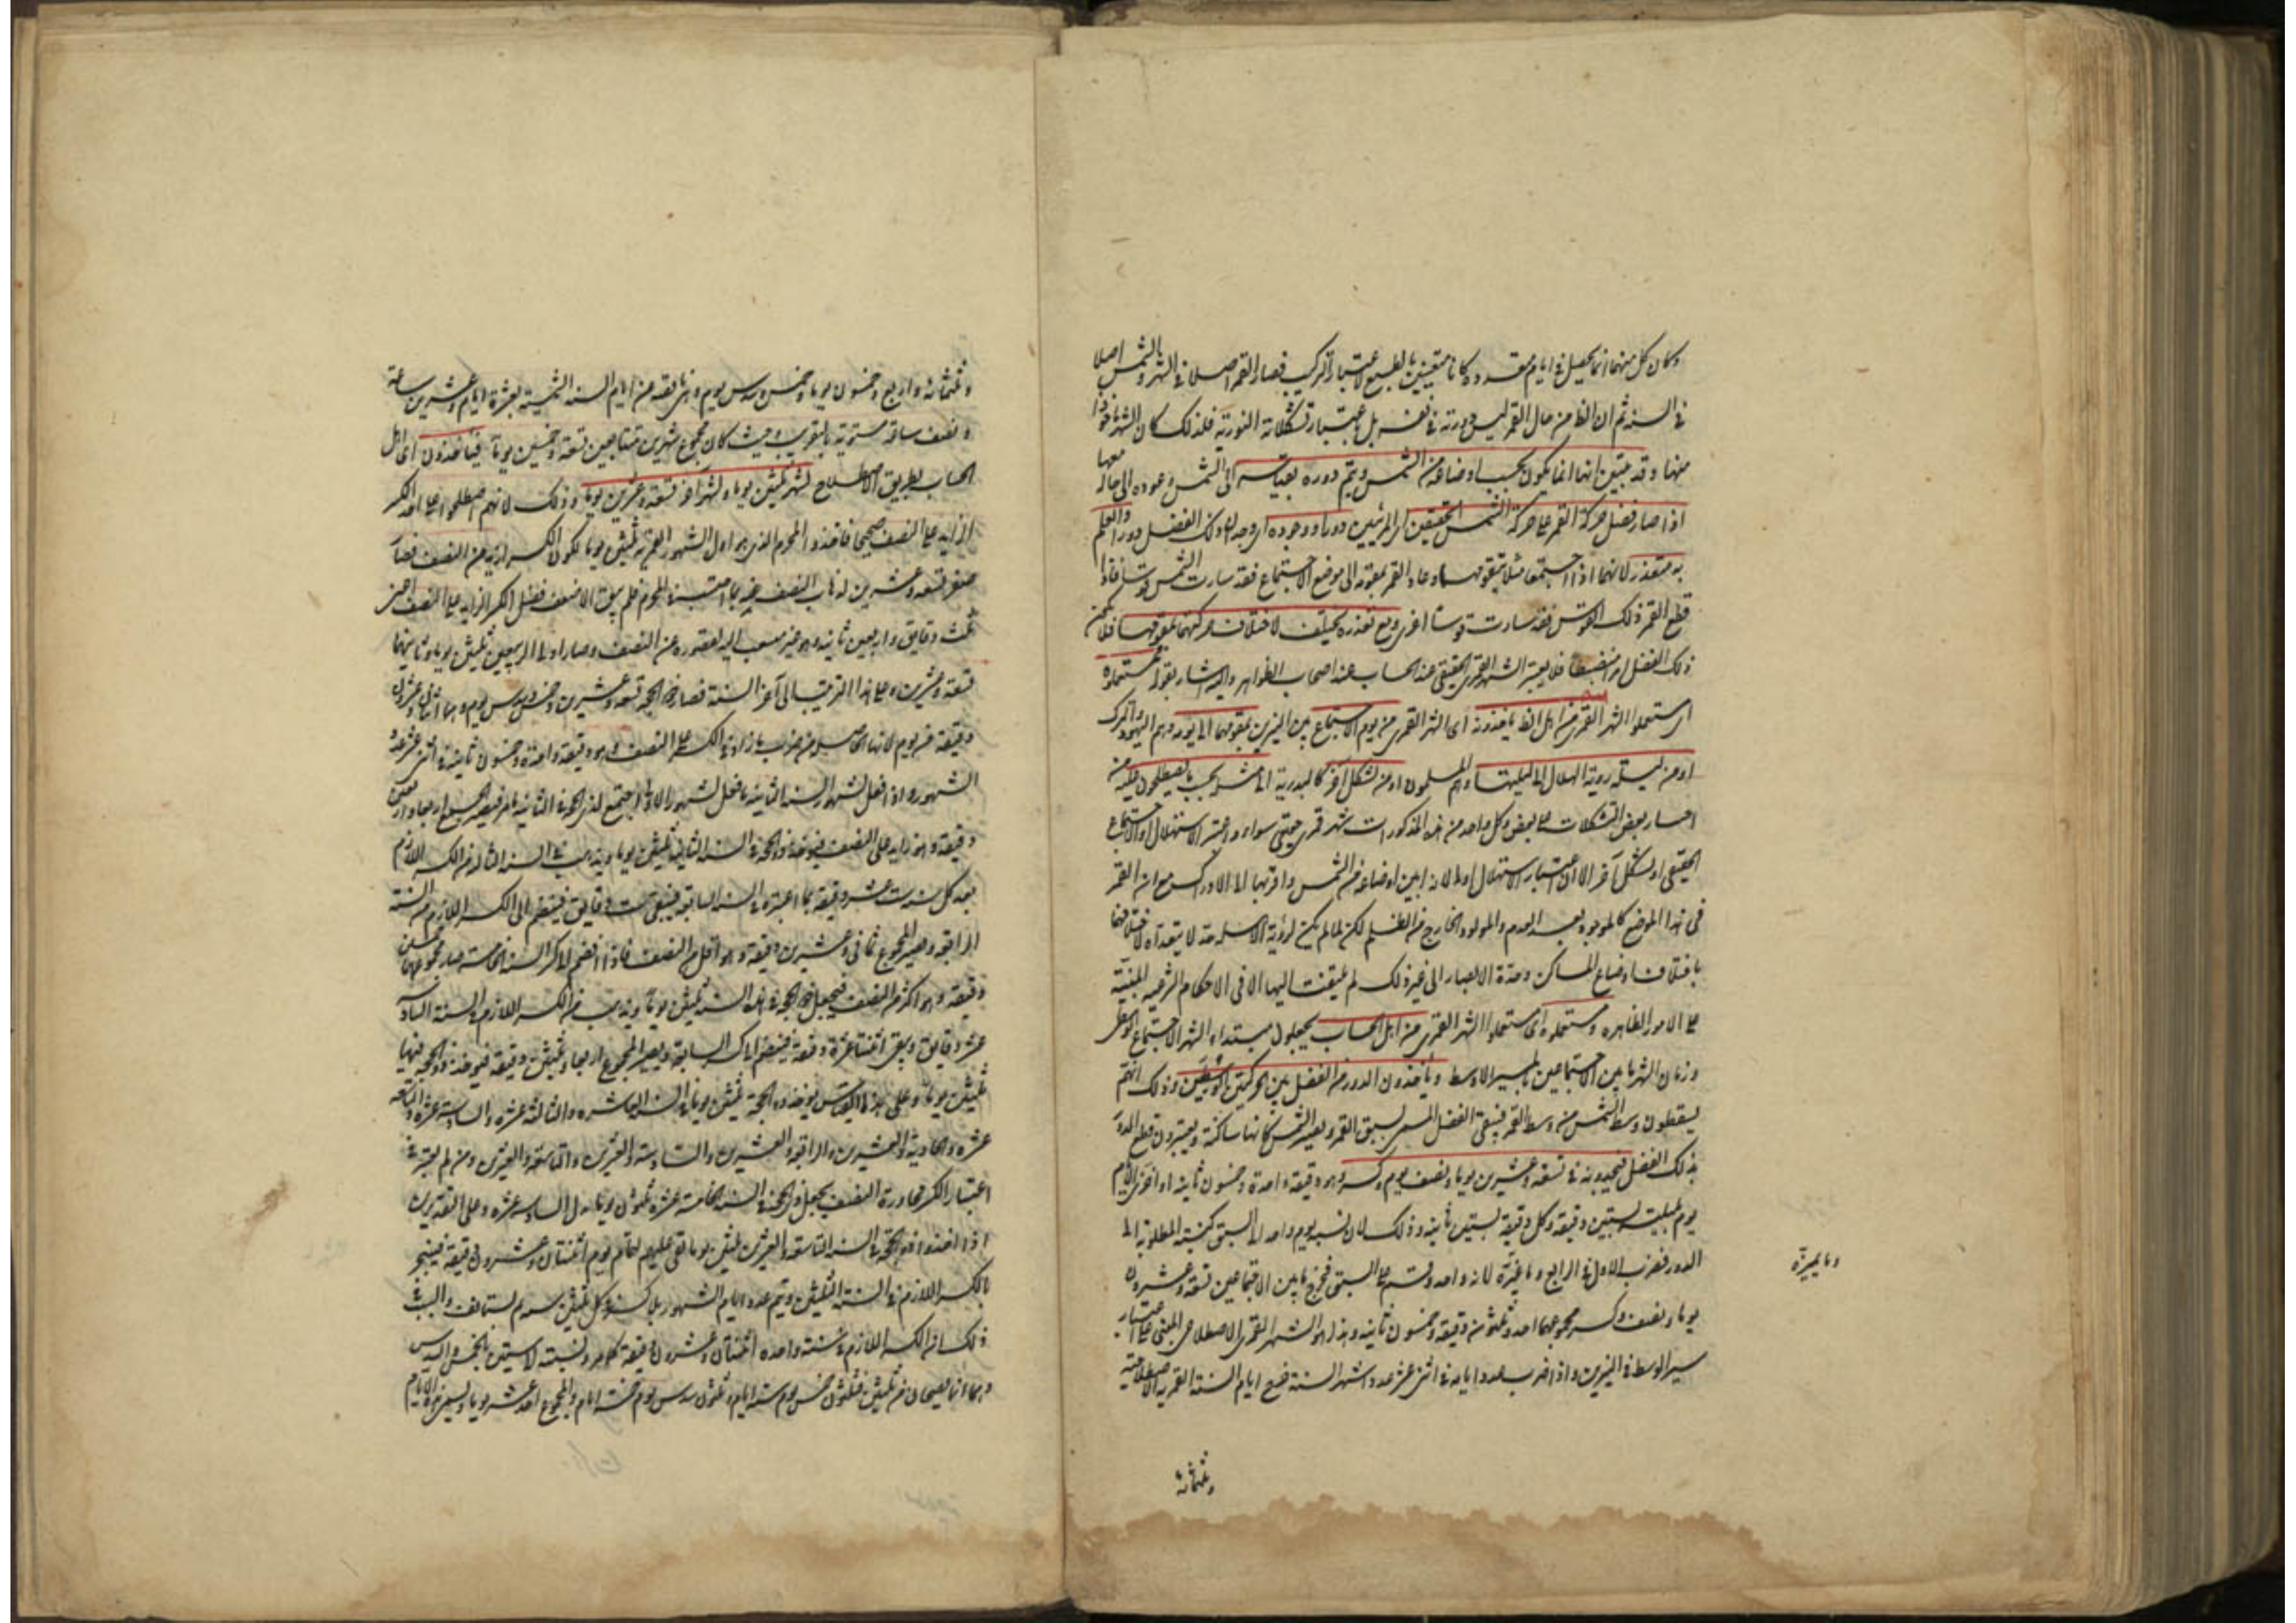 وكان كل منهما انما يحصل فى ايام معدودة كانا متعينين بالطبع لاعتبار التركيب فصار القمر اصلا فى الشهر والشمس اصلا
فى السنة ثم ان الظ من حال القمر ليس دورته فى نفسه بل باعتبار تشكلاته النورية فلذلك كان الشهر مأخوذا
منها وقد تبين انها انما يكون بحسب اوضاعه من الشمس ويتم دوره بقياسه الى الشمس وعوده الى حاله معها
اذا صار فضل حركة القمر على حركة الشمس الحقيقيتين اى المرئيتين دورا ووجوده اى وجدان ذلك الفضل دورا والعلم
به متعذر لانهما اذا اجتمعا مثلا بتقويمهما وعاد القمر بتقويمه الى موضع الاجتماع فقد سارت الشمس قوسا فاذا
قطع القمر تلك القوس فقد سارت قوسا اخرى ومع تعذره يختلف لاختلاف حركتهما بتقويمهما فلا يمكن
ذلك الفضل امر منضبطا فلا يعتبر الشهر القمرى الحقيقى عند الحساب عند اصحاب الظواهر واليه اشار بقوله مستعملوه
اى مستعملوا الشهر القمرى من اهل الظ يأخذونه اى الشهر القمرى من يوم الاجتماع بين النيرين بتقويمهما الى يومه وهم اليهود والترك
او من ليلة رؤية الهلال الى ليلتها وهم المسلمون او من تشكل آخر كالبدرية الى مثله بحسب ما يصطلحون عليه من
اختيار بعض التشكلات على بعض وكل واحد من هذه المذكورات شهر قمرى حقيقى سواء اعتبر الاستهلال او الاجتماع
الحقيقى او تشكل آخر الا ان اعتبار الاستهلال اولى لانه ابين اوضاعه من الشمس واقربها الى الادراك مع ان القمر
فى هذا الموضع كالموجود بعد العدم والمولود الخارج من الظلم لكن لما لم يكن لرؤية الاهلة حد لا يتعداه لاختلافها
باختلاف اوضاع المساكن وحدة الابصار الى غير ذلك لم يلتفت اليها الا فى الاحكام الشرعية المبنية
على الامور الظاهرة ومستعملوه اى مستعملوا الشهر القمرى من اهل الحساب يجعلون مبتداء الشهر الاجتماع الوسطى
وزمان الشهر ما بين الاجتماعين بالمسير الاوسط ويأخذون الدور من الفضل بين الحركتين الوسطيتين وذلك انهم
يسقطون وسط الشمس من وسط القمر فيبقى الفضل المسمى بسبق القمر ويصير الشمس كانها ساكنة ويعتبرون قطع الدور
بذلك الفضل فيجدونه فى تسعة وعشرين يوما ونصف يوم وكسر وهو دقيقة واحدة وخمسون ثانية اذا جزى اليوم
يوم بليلته بستين دقيقة وكل دقيقة بستين ثانية وذلك لان نسبة يوم واحد الى السبق كنسبة المطلوب الى
الدور فضرب الاول فى الرابع وما غيره لانه واحد وقسم على السبق فخرج ما بين الاجتماعين تسعة وعشرون
يوما ونصف وكسر مجموعهما احد وثلثون دقيقة وخمسون ثانية وهذا هو الشهر القمرى الاصطلاحى المبنى على اعتبار
سير الوسط فى النيرين واذا ضرب عدد ايامه فى اثنى عشر عدد اشهر السنة خرج ايام السنة القمرية الاصطلاحية
وثلثمائة
وما يميزه
وثلثمائة واربع وخمسون يوما وخمس وسدس يوم وهى ناقصة عن ايام السنة الشمسية بعشرة ايام وعشرين ساعة
ونصف ساعة مستوية بالتقريب وحيث كان مجموع شهرين متتابعين تسعة وخمسين يوما فيأخذون اى اهل
الحساب بطريق الاصطلاح لشهر ثلثين يوما ولشهر آخر تسعة وعشرين يوما وذلك لانهم اصطلحوا على اخذ الكسر
الزايد على النصف صحيحا فاخذوا المحرم الذى هو اول الشهور العربية ثلثين يوما لكون الكسر ازيد من النصف فصار
صفر تسعة وعشرين لذهاب النصف عنه بما احتسب فى المحرم فلم يبق الا ضعف فضل الكسر الزايد على النصف اعنى
ثلث دقايق واربعين ثانية وهو غير محسوب اليه لقصوره عن النصف وصار اول الربيعين ثلثين يوما وثانيهما
تسعة وعشرين وعلى هذا الترتيب الى آخر السنة فصار ذو الحجة تسعة وعشرين وخمس وسدس يوم وهما اثنان وعشرون
دقيقة من يوم لانها الحاصلة من ضرب ما زاد فى الكسر على النصف وهو دقيقة واحدة وخمسون ثانية فى اثنى عشر عدد
الشهور واذا فعل لشهور السنة الثانية ما فعل لشهور الاولى اجتمع لذى الحجة الثانية
دقيقة وهو زايد على النصف فيؤخذ ذو الحجة فى السنة الثانية ثلثين يوما ويذهب فى السنة الثالثة من الكسر اللازم
بعد كل سنة ست عشر دقيقة بما اعتبر فى السنة السابقة فيبقى ست دقايق فينضم الى الكسر اللازم من السنة
الرابعة ويصير المجموع ثمانى وعشرين دقيقة وهو اقل من النصف فاذا انضم الى كسر السنة الخامسة صار مجموعهما خمسين
دقيقة وهو اكثر من النصف فيجعل ذو الحجة فى هذه السنة ثلثين يوما ويذهب من الكسر اللازم فى السنة السادسة
عشر دقايق ويبقى اثنتا عشرة دقيقة فينضم الى كسر السابعة ويصير المجموع اربعا وثلثين دقيقة فيؤخذ ذو الحجة فيها
ثلثين يوما وعلى هذا القياس يؤخذ ذو الحجة ثلثين يوما فى السنة العاشرة والثالثة عشرة والسادسة عشرة والثامنة
عشرة والحادية والعشرين والرابعة والعشرين والسادسة والعشرين والتاسعة والعشرين ومن لم يعتبر فى
اعتبار الكسر مجاوزة النصف يجعل ذو الحجة فى السنة الخامسة عشرة ثلثون يوما بدل السادسة عشرة وعلى التقديرين
اذا اخذوا ذو الحجة فى السنة التاسعة والعشرين ثلثين يوما بقى عليهم لتمام يوم اثنتان وعشرون دقيقة فينجبر
بالكسر اللازم فى السنة الثلثين ويتم عدد ايام الشهور بلا كسر فى كل ثلثين سنة ثم يستأنف والسبب
ذلك ان الكسر اللازم فى سنة واحدة اثنتان وعشرون دقيقة كما مر ونسبته الى ستين بالخمس والسدس
وهما انما يصحان من ثلثين فثلثون خمس يوم ستة ايام وثلثون سدس يوم خمسة ايام والمجموع احد عشر يوما ويسمى هذه الايام